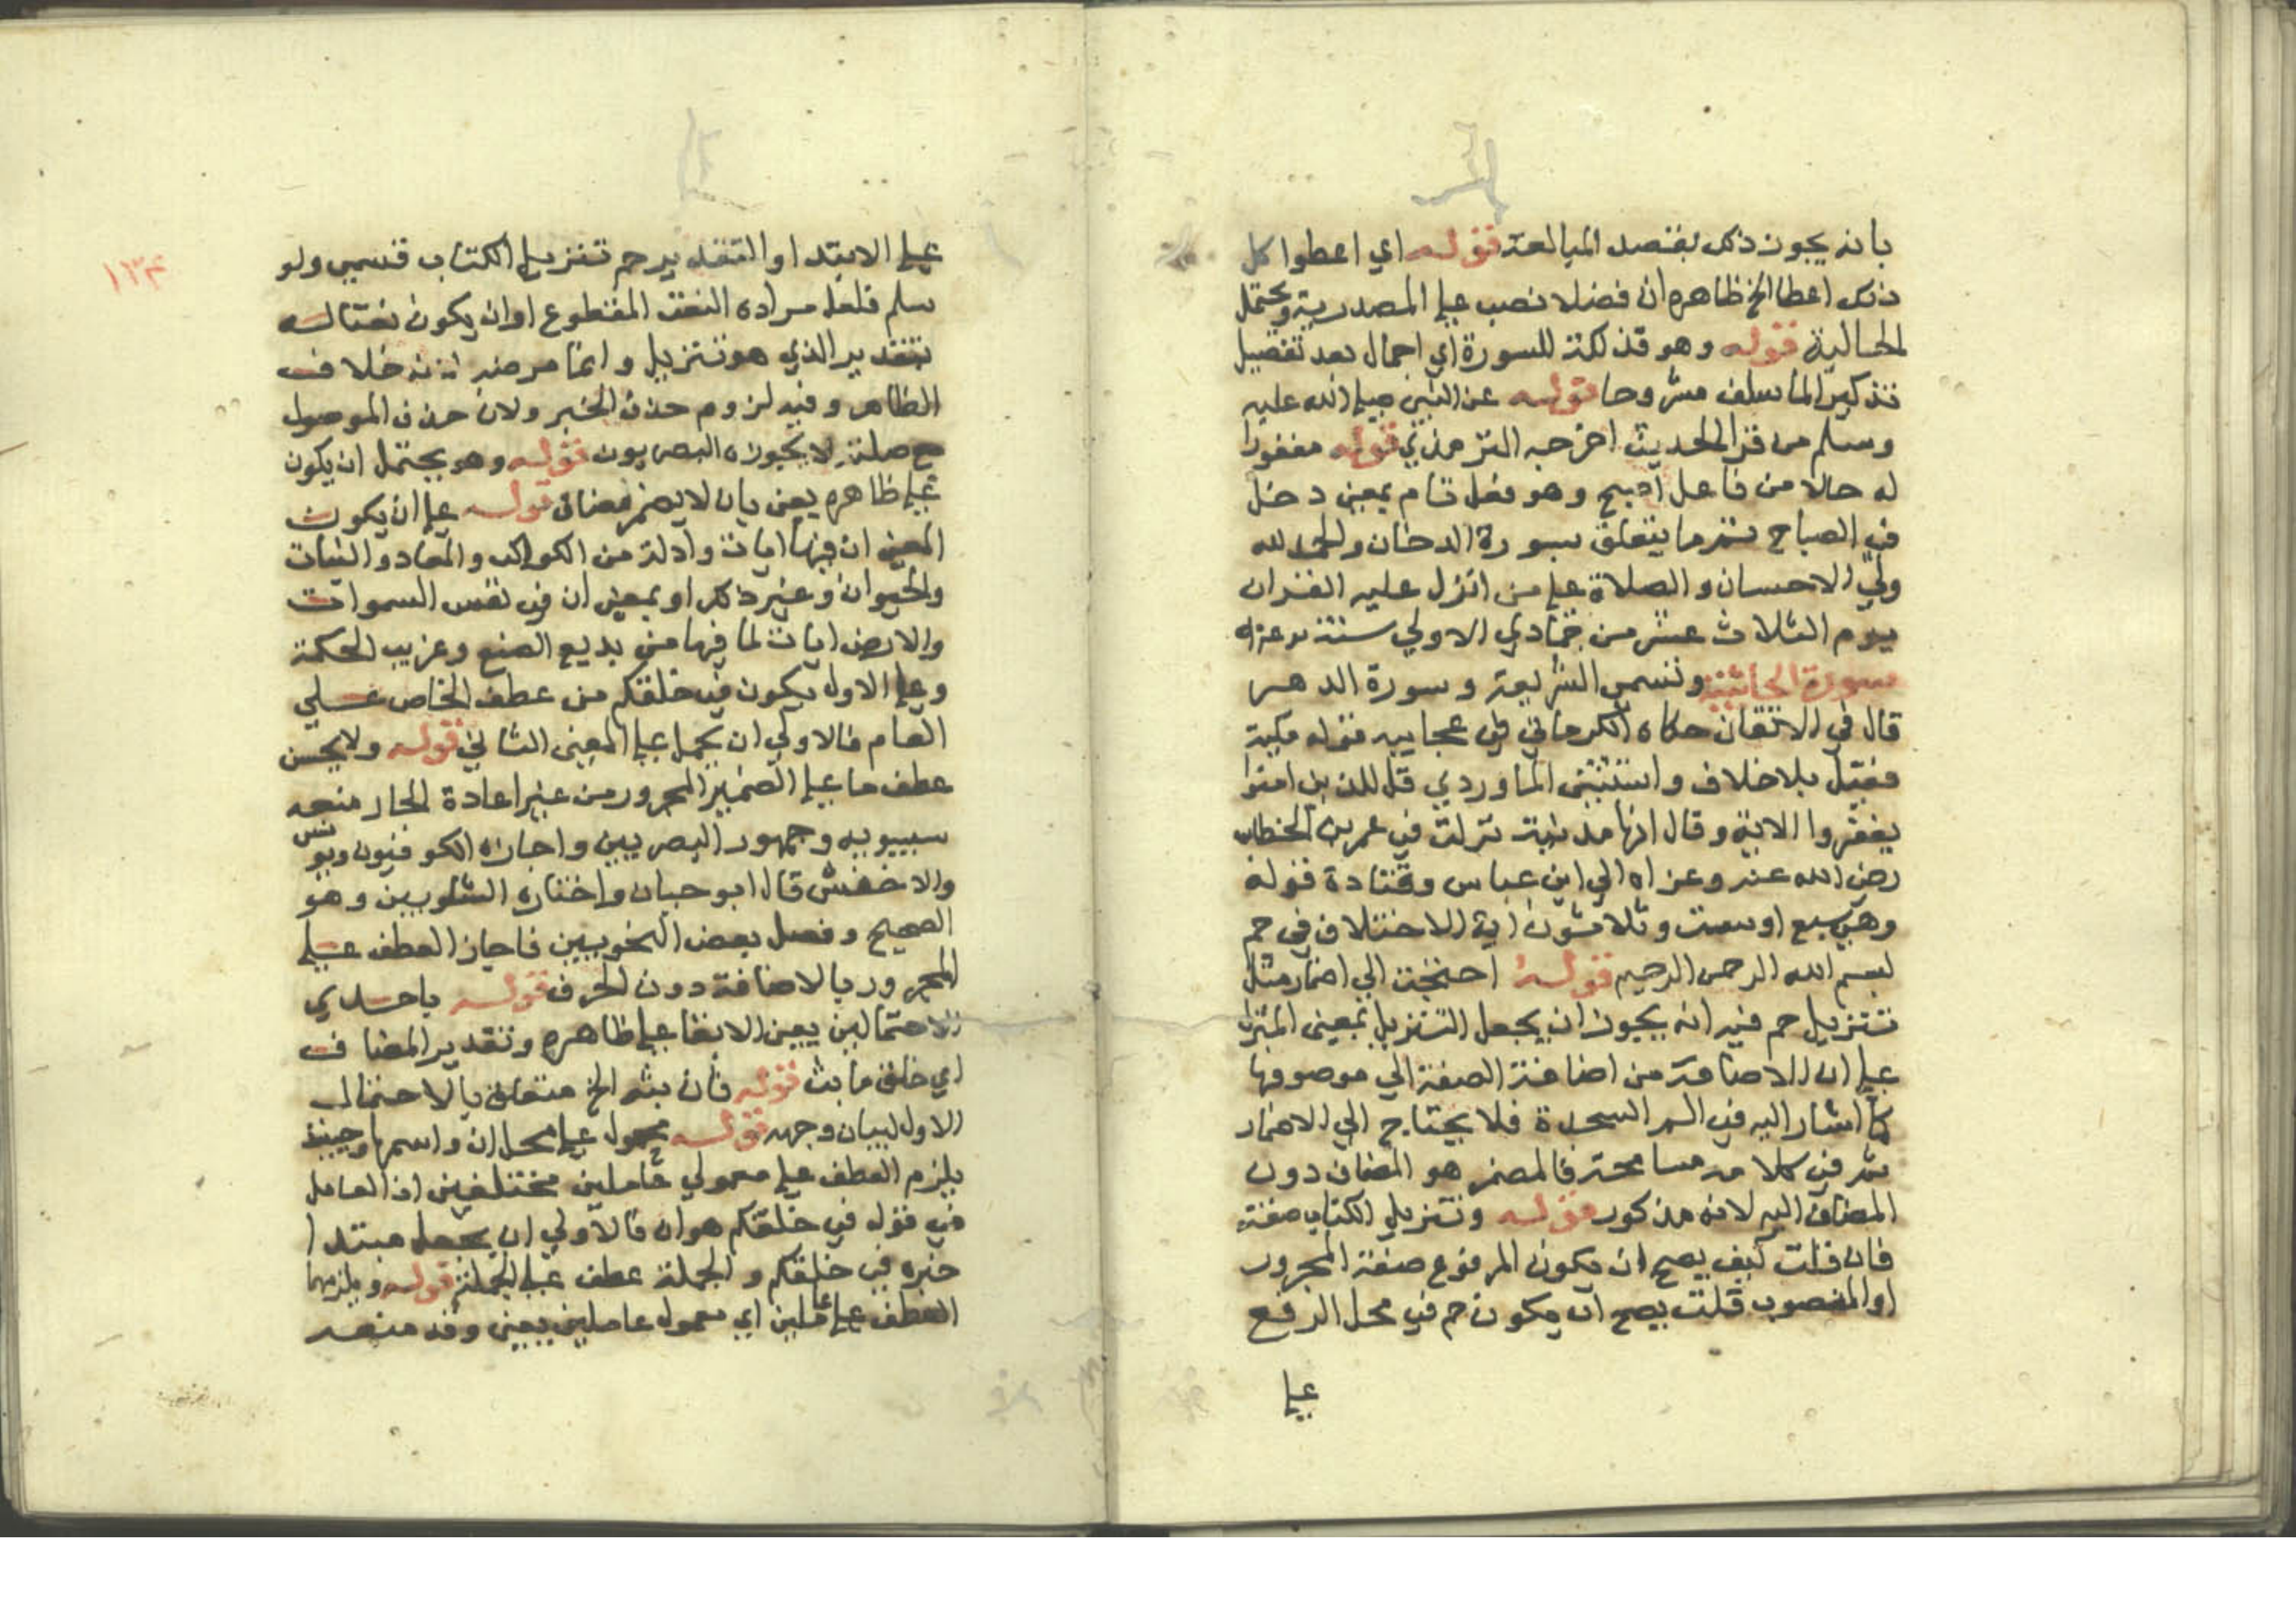 بانه يجوز ذلك بقصد المبالغة قوله اي اعطوا كل
ذلك اعطا الخ ظاهره ان فضلا نصب علي المصدرية ويحتمل
الحالية قوله وهو فذلكة للسورة اي اجمال بعد تفصيل
تذكيرا لما سلف مشروحا قوله عن النبي صلي الله عليه
وسلم من قرا الحديث اخرجه الترمذي قوله مغفورا
له حال من فاعل اصبح وهو فعل تام بمعني دخل
في الصباح تم ما يتعلق بسورة الدخان والحمد لله
ولي الاحسان والصلاة علي من انزل عليه القران
يوم الثلاث عشر من جمادي الاولي سنة
سورة الجاثية وتسمي الشريعة وسورة الدهر
قال في الاتقان حكاه الكرماني في عجايبه قوله مكية
فقيل بلا خلاف واستثني الماوردي قل للذين امنوا
يغفروا الاية وقال انها مدنية نزلت في عمر بن الخطاب
رضي الله عنه وعزاه الي ابن عباس وقتادة قوله
وهي سبع او ست وثلاثون اية الاختلاف في حم
بسم الله الرحمن الرحيم قوله احتجت الي اضمار مثل
تنزيل حم فيه انه يجوز ان يجعل التنزيل بمعني المنزل
علي ان الاضافة من اضافة الصفة الي موصوفها
كما اشار اليه في الم السجدة فلا يحتاج الي الاضمار
ثم في كلامه مسامحة فالمضمر هو المضاف دون
المضاف اليه لانه مذكور قوله وتنزيل الكتاب صفته
فان قلت كيف يصح ان يكون المرفوع صفة المجرور
او المنصوب قلت يصح ان يكون حم في محل الرفع
علي
١٣٤
علي الابتدا والتقدير حم تنزيل الكتاب قسمي ولو
سلم فلعل مراده النعت المقطوع او ان يكون نعتا له
بتقدير الذي هو تنزيل وانما مرضه لانه خلاف
الظاهر وفيه لزوم حذف الخبر ولان حذف الموصول
مع صلته لا يجوزه البصريون قوله وهو يحتمل ان يكون
علي ظاهره يعني بان لا يضمر مضاف قوله علي ان يكون
المعني ان فيها ايات وادلة من الكواكب والمعادن والنبات
والحيوان وغير ذلك او بمعني ان في نفس السموات
والارض ايات لما فيها من بديع الصنع وغريب الحكمة
وعلي الاول يكون في خلقكم من عطف الخاص علي
العام فالاولي ان يحمل علي المعني الثاني قوله ولا يحسن
عطف ما علي الضمير المجرور من غير اعادة الجار منعه
سيبويه وجمهور البصريين واجازه الكوفيون ويونس
والاخفش قال ابو حيان واختاره الشلوبين وهو
الصحيح وفصل بعض النحويين فاجاز العطف علي
المجرور بالاضافة دون الحرف قوله باحدي
الاحتمالين يعني الابقا علي ظاهره وتقدير المضاف
اي خلق ما بث قوله فان بثه الخ متعلق بالاحتمال
الاول لبيان وجهه قوله محمول علي محل ان واسمها وحينئذ
يلزم العطف علي معمولي عاملين مختلفين اذ العامل
في قوله في خلقكم هو ان فالاولي ان يجعل مبتدا
خبره في خلقكم والجملة عطف علي الجملة قوله ويلزمها
العطف علي عاملين اي معمول عاملين يعني وقد منعه